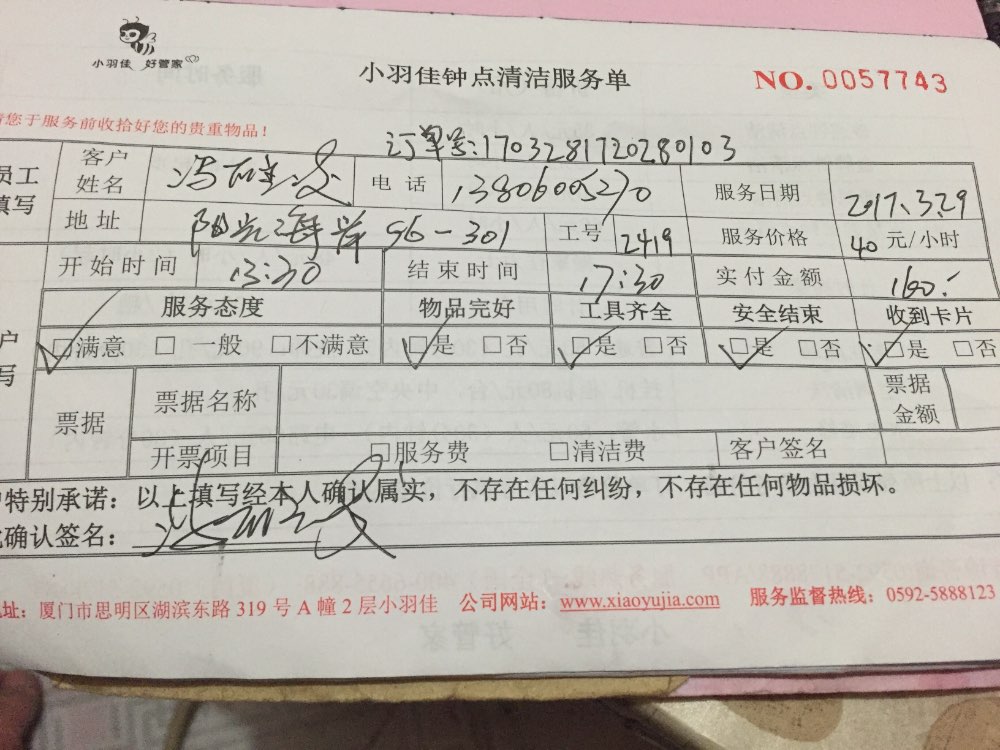 小羽佳 好管家
小羽佳钟点清洁服务单
NO.0057743
请您于服务前收拾好您的贵重物品！
订单号:1703281720280103
员工填写
客户姓名 冯 电话 13806005270 服务日期 2017.3.29
地址 阳光海岸 96-301 工号 2419 服务价格 40 元/小时
开始时间 13:30 结束时间 17:30 实付金额 160.-
服务态度 物品完好 工具齐全 安全结束 收到卡片
户写
☑满意 □一般 □不满意 ☑是 □否 ☑是 □否 ☑是 □否 ☑是 □否
票据 票据名称 票据金额
开票项目 □服务费 □清洁费 客户签名
户特别承诺：以上填写经本人确认属实，不存在任何纠纷，不存在任何物品损坏。
确认签名：
址：厦门市思明区湖滨东路 319 号 A 幢 2 层小羽佳 公司网站：www.xiaoyujia.com 服务监督热线：0592-5888123